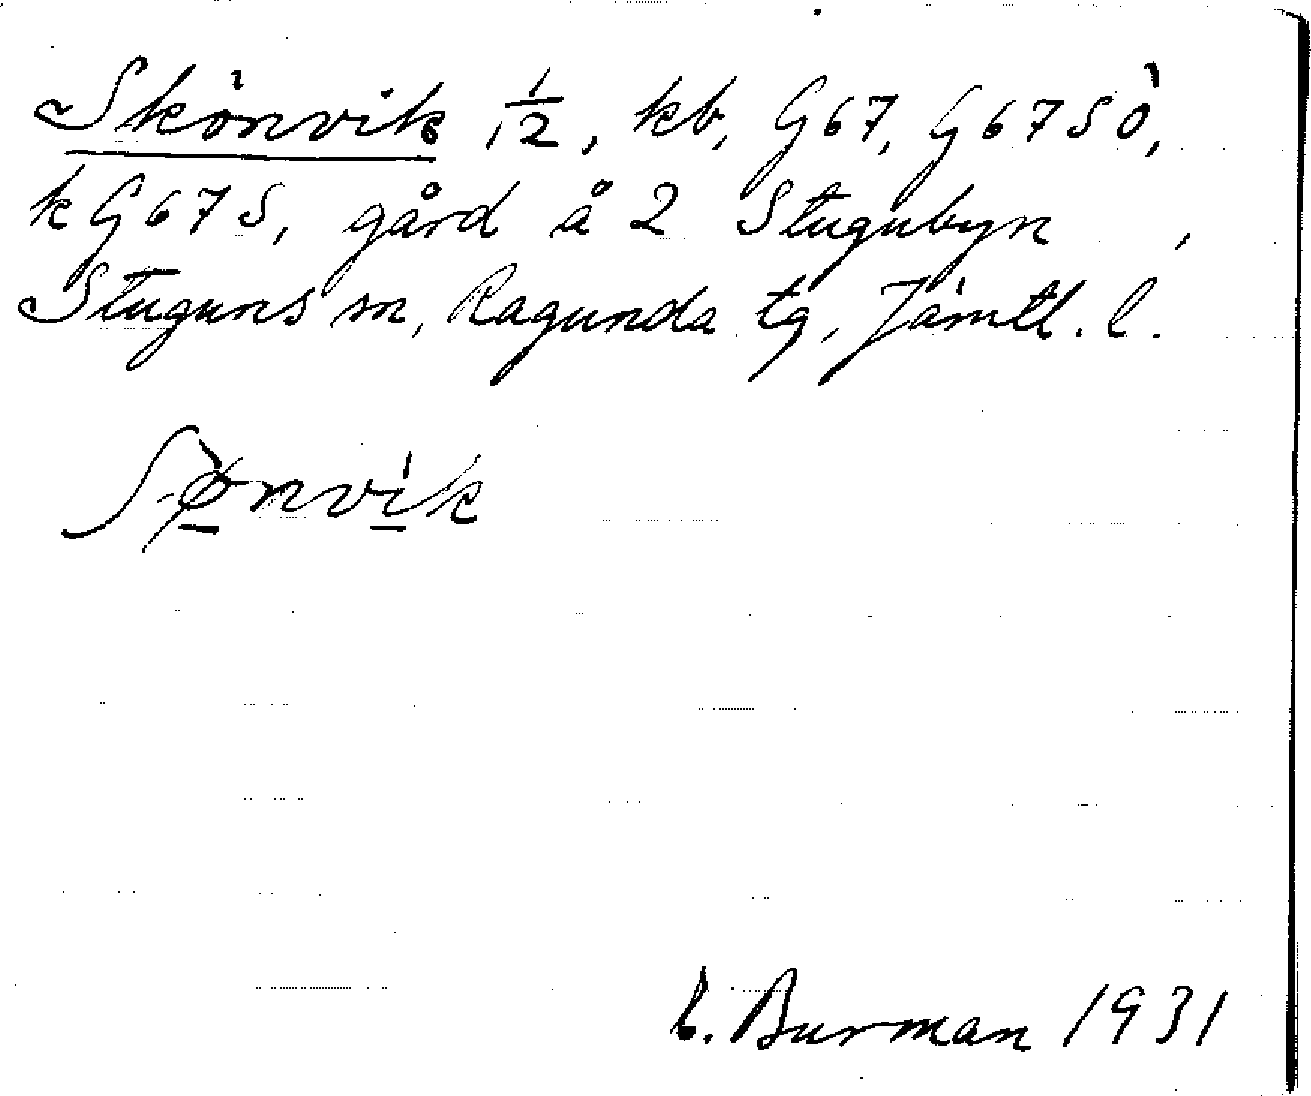 Skönvik 1/12, kb, G67, G67SÖ,
k G67S, gård å 2 Stugubyn ,
Stuguns sn, Ragunda tg, Jämtl. l.
Burman 1931